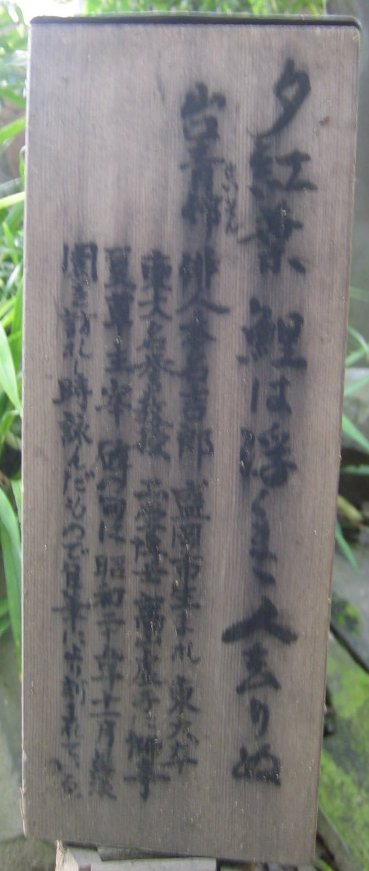 夕紅葉鯉は浮くまゝ人去りぬ
山口青邨 せいそん 俳人 本名吉郎 盛岡市生まれ 東大卒
東大名誉教授 工学博士 高浜虚子に師事
夏草主宰 昭和二十年十一月
訪れし時詠んだもので自筆に